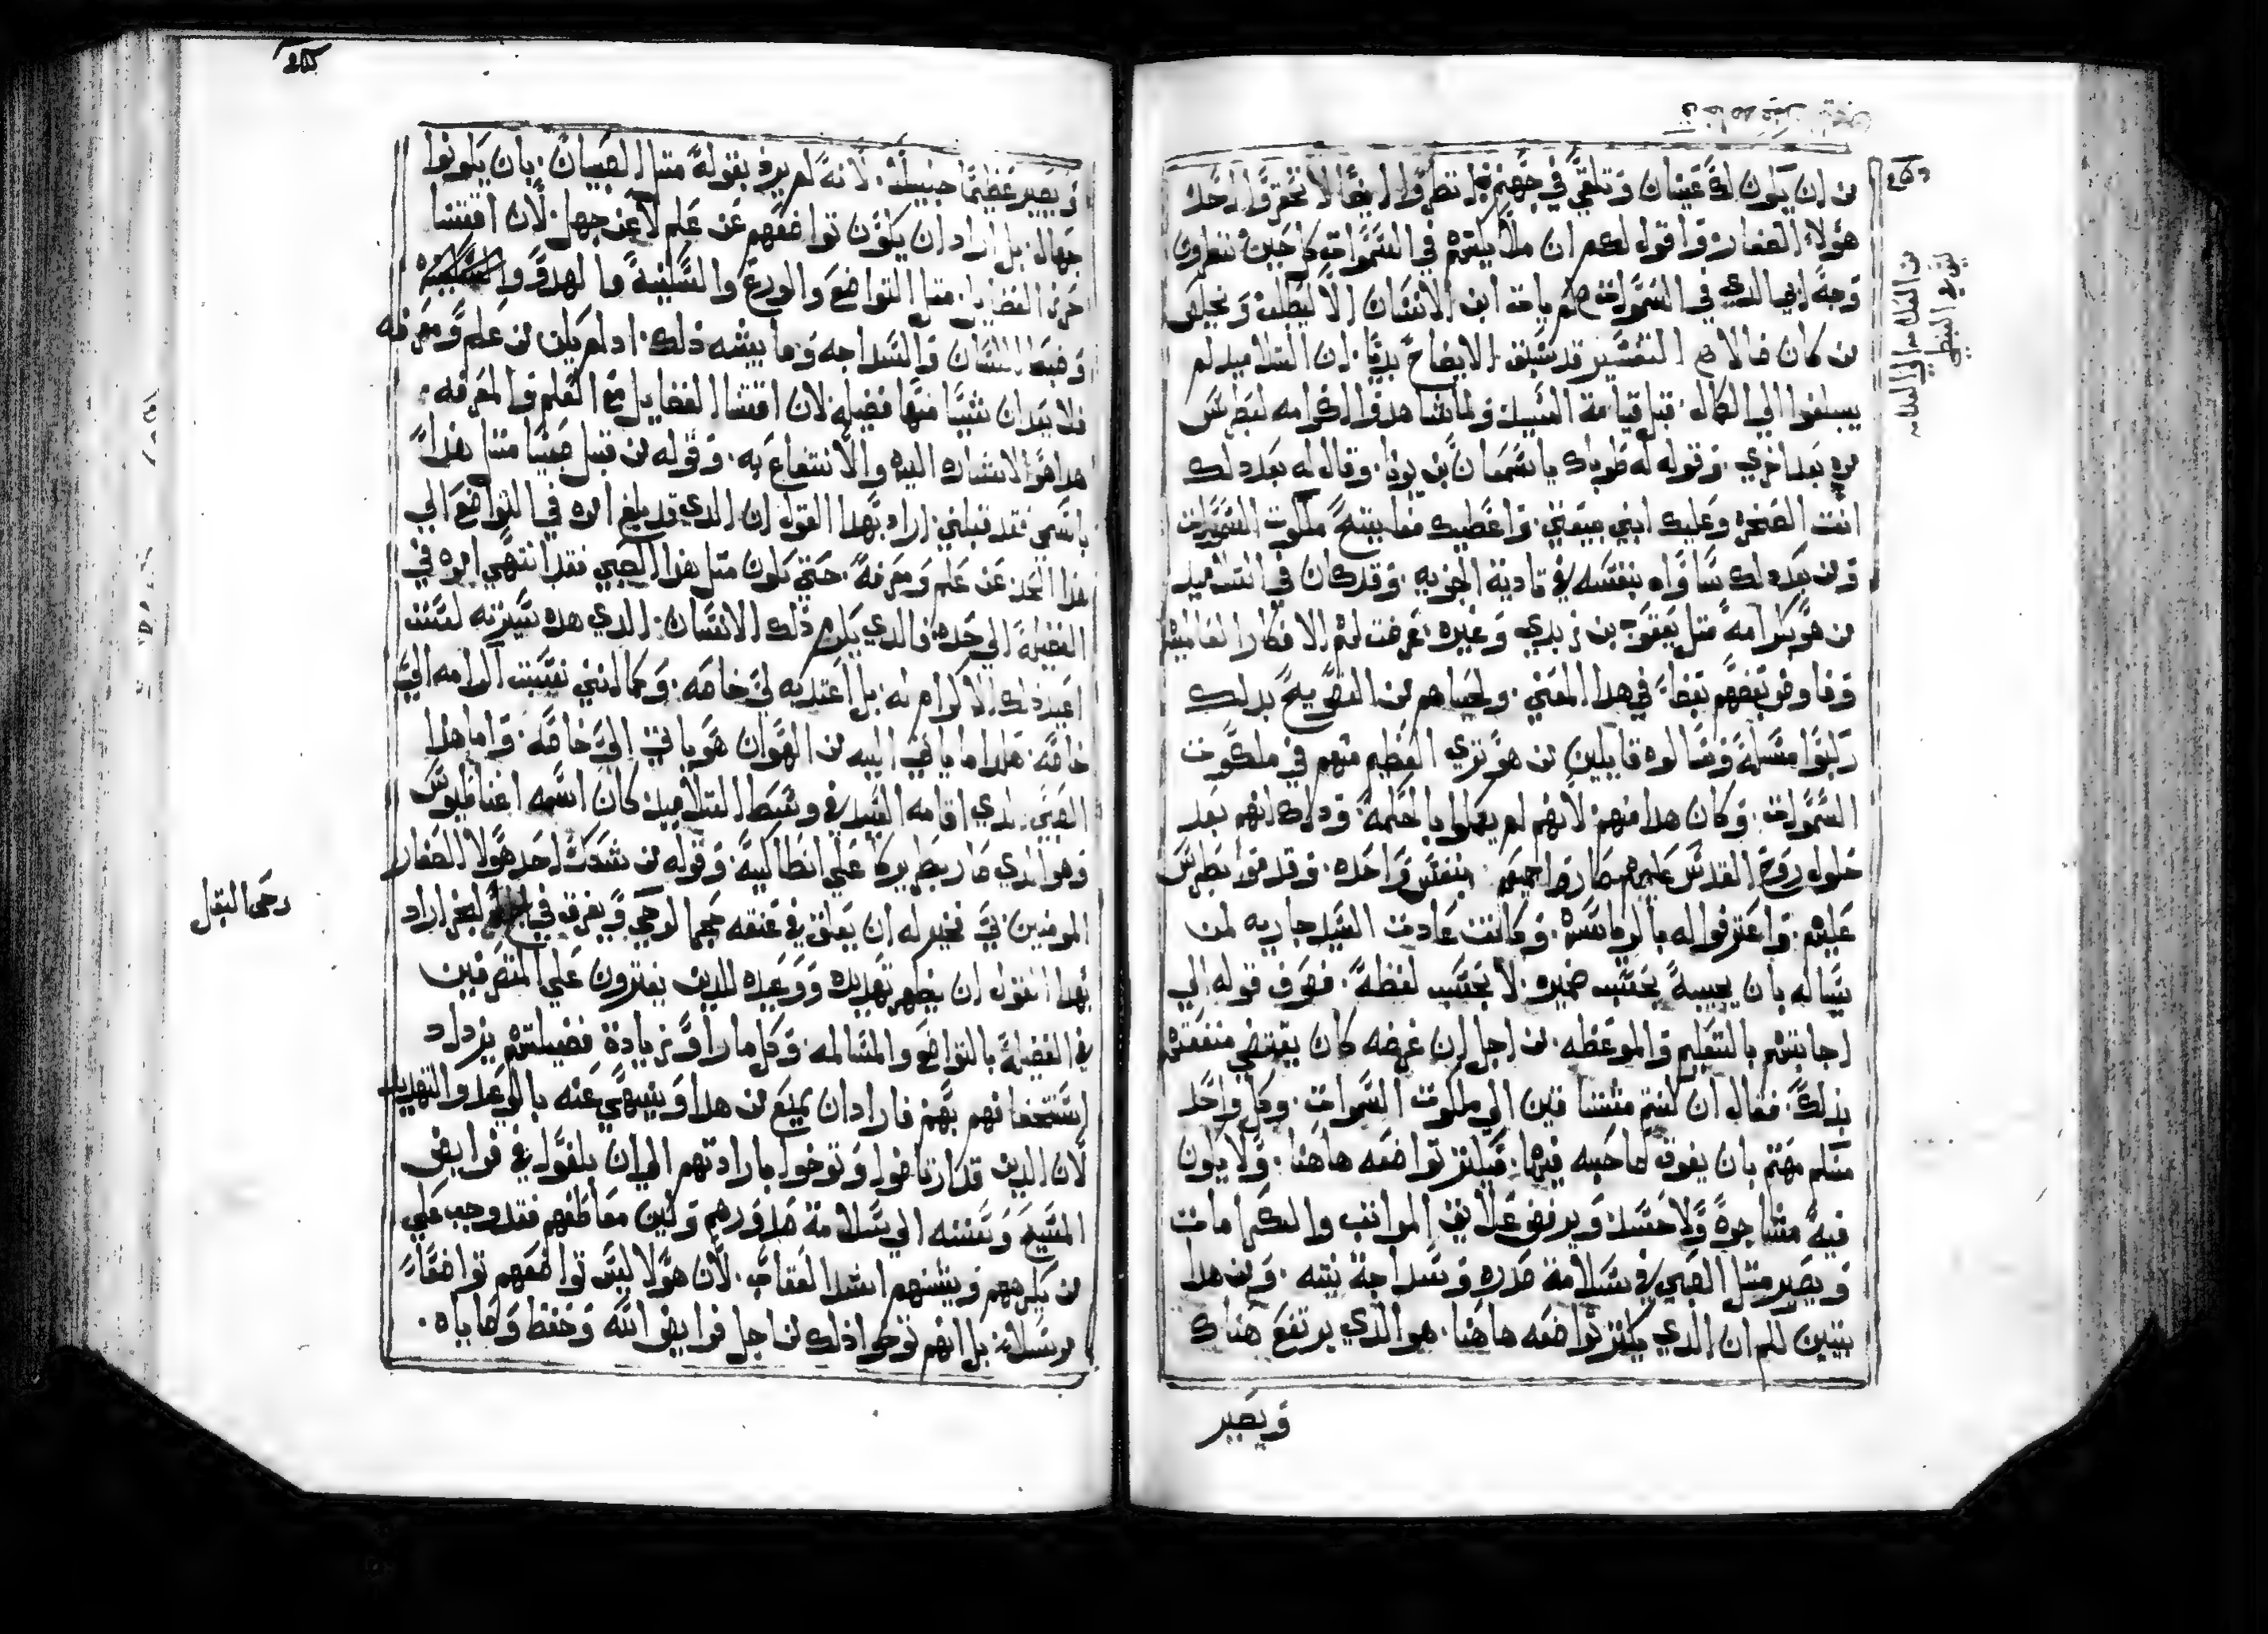 من ان يكون لك عينان وتلقي في جهنم انظروا ايضا لا تحقروا احد
هولاء الصغار واقول لكم ان ملايكتهم في السموات كل حين ينظرون
وجه ابي الدي في السموات لم يات ابن الانسان الا ليطلب ويخلص
من كان ضالا التفسير قد سبق الايضاح بديا ان التلاميد لم
يبلغوا الي الكمال قبل قيامة السيد ولما شاهدوا الكرامه لبطرس
مره بعد اخري وقوله له طوباك يا سمعان بن يونا وقال له بعد دلك
انت الصخره وعليك ابني بيعتي واعطيك مفاتيح ملكوت السموات
ومن بعد دلك ساواه بنفسه في تادية الجزيه وقد كان في التلاميد
من هو كرامة مثل يعقوب بن زبدي وغيره عرضت لهم الافكار العالميه
وفاوض بعضهم بعضا في هدا المعني ولحياهم من التصريح بدلك
رتبوا مسلة وسالوه قايلين من هو تري العظيم منهم في ملكوت
السموات وكان هدا منهم لانهم لم يعملوا بالحكمه ودلك انهم بعد
حلول روح القدس عليهم صاروا جميعهم بنفس واحده وقدموا بطرس
عليهم واعترفوا له بالرياسه وكانت عادت السيد جاريه لمن
يساله بان يجيبه بحسب ضميره لا بحسب لفظه فصرف قوله الي
اجابتهم بالتعليم والموعظه من اجل ان غرضه كان يقتضي منفعتهم
بذلك فقال ان كنتم مشتاقين الي ملكوت السموات وكل واحد
منكم مهتم بان يفوق صاحبه فيها فيكثر تواضعه هاهنا ولا يكون
فيه مشاجره ولا حسد ويرفض علايق المراتب والكرامات
ويصير مثل الصبي في سلامة صدره وسداجة نيته ومن هدا
يتبين لكم ان الدي يكثر تواضعه هاهنا هو الذي يرتفع هناك
ويصير
ويصير عظيما حينيد لانه لم يرد بقوله مثل الصبيان بان يكونوا
جهال بل اراد ان يكون تواضعهم عن علم لا عن جهل لان اقتنا
حزن الفضايل مثل التواضع والورع والسكينة والهدو
وضبط اللسان والسداجه وما يشبه ذلك اد لم يكن من علم ومعرفه
فلا يعد ان شيا منها فضيله لان اقتنا الفضايل مع العلم والمعرفه
هدا هو الاشاره اليه والانتفاع به وقوله من قبل صبيا مثل هدا
باسمي فقد قبلني اراد بهدا القول ان الدي قد بلغ امره في التواضع الي
هدا الحد عن علم ومعرفة حتي يكون مثل هدا الصبي فقد انتهي امره في
الفضيلة الي حده فالدي يكرم ذلك الانسان الدي هده سيرته لست
اعتد دلك الاكرام له بل اعتد به لي خاصه وكما انني نسبت الكرامه الي
خاصه هكدا ما ياتي اليه من الهوان هو ياتي الي خاصه واما هدا
الصبي الدي اقامه السيد في وسط التلاميد كان اسمه اغناطيوس
وهو الدي صار بطريركا علي انطاكيه وقوله من شكك احد هولا الصغار
المومنين بي فخير له ان يعلق في عنقه حجر الرحي ويغرق في البحر اراد
بهدا القول ان يظهر تهديده ووعيده للدين يفترون علي المتصرفين
في الفضيلة بالتواضع والمسالمه وكل ما راو زيادة فضيلتهم يزداد
استخفافهم بهم فاراد ان يمنع من هدا وينهي عنه بالوعد والتهديد
لان الدين قد ارتاضوا وتوخوا بارادتهم الي ان بلغوا في فرايض
المسيح وسننه الي سلامة صدورهم ولين معاطفهم فقد وجب علي
من يكرههم ويشنهم اشد العقاب لان هولا ليس تواضعهم تواضعا
مرسلا بل انهم توخوا ذلك من اجل فرايض الله وحفظ وصاياه
رحي البغل